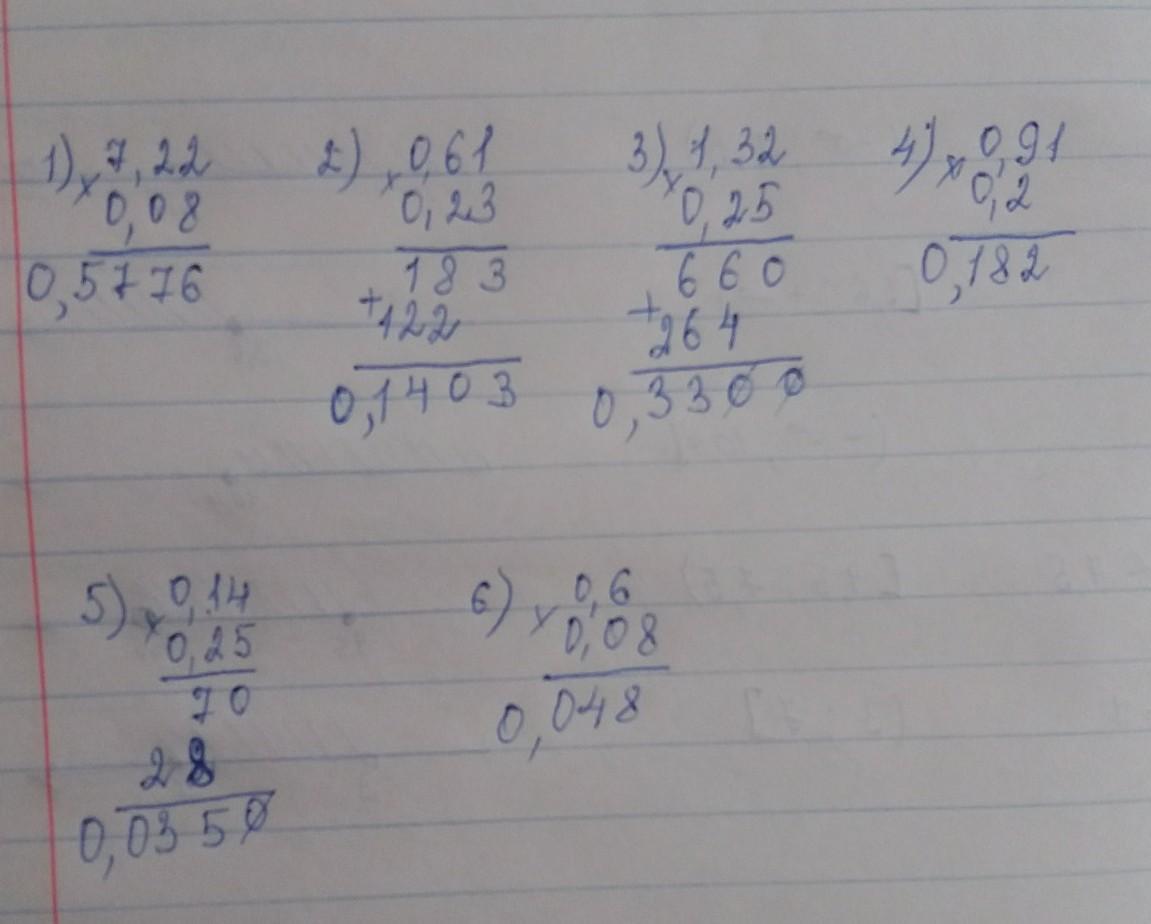 1) × 7,22 2) × 0,61 3) × 1,32 4) × 0,91
0,08 0,23 0,25 0,2
0,5776 183 660 0,182
+ 122 + 264
0,1403 0,3300
5) × 0,14 6) × 0,6
0,25 0,08
70 0,048
28
0,0350